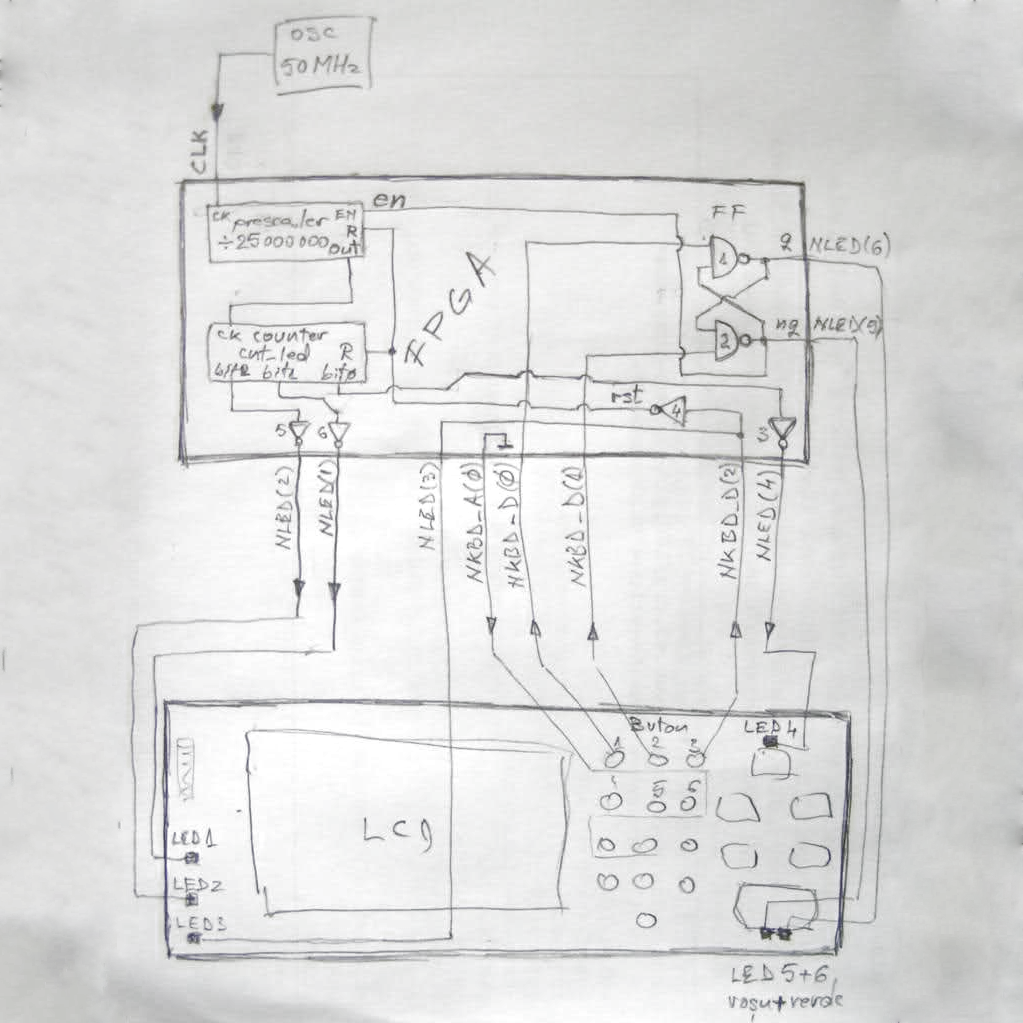 OSC
50 MHz
CLK
CK prescaler EN
R
÷25000000 out
en
FF
FPGA
1
q NLED(6)
nq NLED(5)
2
CK counter
cnt_led R
bit2 bit1 bit0
rst
4
5
6
3
NLED(2)
NLED(1)
NLED(3)
NKBD_A(0)
NKBD_D(0)
NKBD_D(1)
NKBD_D(2)
NLED(4)
Buton
1 2 3
LED4
5 6
LCD
LED1
LED2
LED3
LED 5+6
roşu+verde